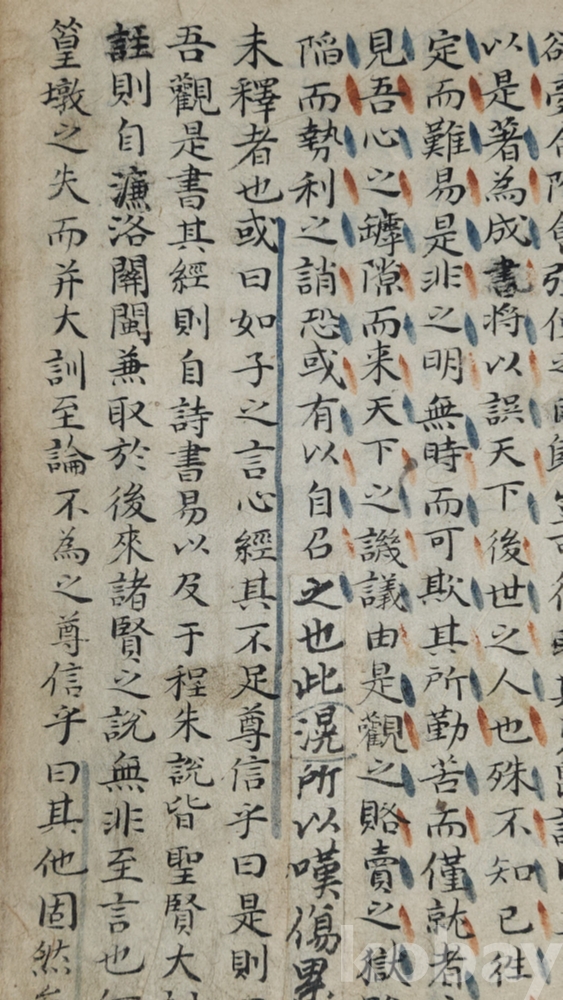 以是著為成書將以誤天下後世之人也殊不知已往
定而難易是非之明無時而可欺其所勤苦而僅就者
見吾心之罅隙而来天下之譏議由是觀之賂賣之獄
陷而勢利之誚恐或有以自召之也此滉所以嘆傷畢
未釋者也或曰如子之言心經其不足尊信乎曰是則
吾觀是書其經則自詩書易以及于程朱說皆聖賢大
註則自濂洛關閩兼取於後來諸賢之說無非至言也
篁墩之失而并大訓至論不為之尊信乎曰其他固然